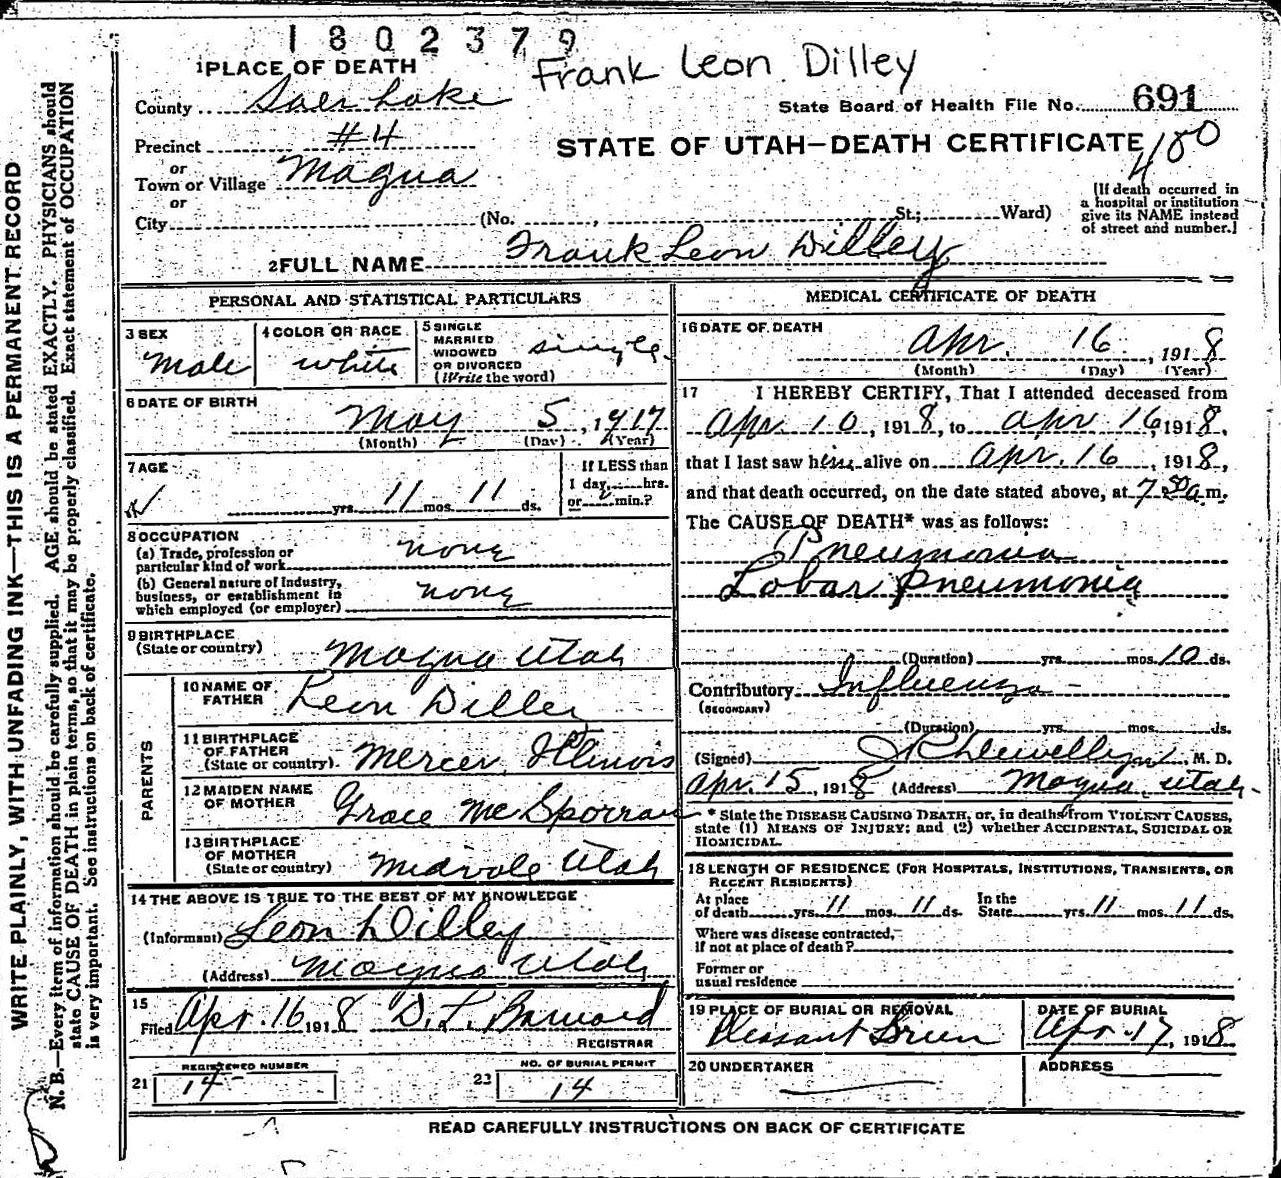 1802379
1 PLACE OF DEATH
Frank Leon Dilley
County Salt Lake
State Board of Health File No. 691
Precinct #4
STATE OF UTAH—DEATH CERTIFICATE
or
Town or Village Magna
or
City (No. , St.; Ward)
[If death occurred in
a hospital or institution
give its NAME instead
of street and number.]
2 FULL NAME Frank Leon Dilley
PERSONAL AND STATISTICAL PARTICULARS
3 SEX
Male
4 COLOR OR RACE
white
5 SINGLE
MARRIED
WIDOWED
OR DIVORCED
(Write the word)
single
6 DATE OF BIRTH
May 5, 1917
(Month) (Day) (Year)
7 AGE
yrs. 11 mos. 11 ds.
If LESS than
1 day, hrs.
or min.?
8 OCCUPATION
(a) Trade, profession or
particular kind of work none
(b) General nature of Industry,
business, or establishment in
which employed (or employer) none
9 BIRTHPLACE
(State or country) Magna Utah
PARENTS
10 NAME OF
FATHER Leon Dilley
11 BIRTHPLACE
OF FATHER
(State or country) Mercer, Illinois
12 MAIDEN NAME
OF MOTHER Grace McSporran
13 BIRTHPLACE
OF MOTHER
(State or country) Midvale Utah
14 THE ABOVE IS TRUE TO THE BEST OF MY KNOWLEDGE
(Informant) Leon Dilley
(Address) Magna Utah
15
Filed Apr. 16 1918 D. L. Barnard
REGISTRAR
21 REGISTERED NUMBER
14
23 NO. OF BURIAL PERMIT
14
MEDICAL CERTIFICATE OF DEATH
16 DATE OF DEATH
Apr. 16, 1918
(Month) (Day) (Year)
17 I HEREBY CERTIFY, That I attended deceased from
Apr 10, 1918, to Apr 16, 1918,
that I last saw him alive on Apr. 16, 1918,
and that death occurred, on the date stated above, at 7 50 a.m.
The CAUSE OF DEATH* was as follows:
Pneumonia
Lobar pneumonia
(Duration) yrs. mos. 10 ds.
Contributory Influenza
(SECONDARY)
(Duration) yrs. mos. ds.
(Signed) J R Llewellyn, M. D.
Apr. 15, 1918 (Address) Magna, Utah.
* State the DISEASE CAUSING DEATH, or, in deaths from VIOLENT CAUSES,
state (1) MEANS OF INJURY; and (2) whether ACCIDENTAL, SUICIDAL OR
HOMICIDAL.
18 LENGTH OF RESIDENCE (FOR HOSPITALS, INSTITUTIONS, TRANSIENTS, OR
RECENT RESIDENTS)
At place
of death yrs. 11 mos. 11 ds.
In the
State yrs. 11 mos. 11 ds.
Where was disease contracted,
if not at place of death?
Former or
usual residence
19 PLACE OF BURIAL OR REMOVAL
Pleasant Green
DATE OF BURIAL
Apr. 17, 1918
20 UNDERTAKER
ADDRESS
READ CAREFULLY INSTRUCTIONS ON BACK OF CERTIFICATE
WRITE PLAINLY, WITH UNFADING INK—THIS IS A PERMANENT RECORD
N. B.—Every item of information should be carefully supplied. AGE should be stated EXACTLY. PHYSICIANS should
state CAUSE OF DEATH in plain terms, so that it may be properly classified. Exact statement of OCCUPATION
is very important. See instructions on back of certificate.